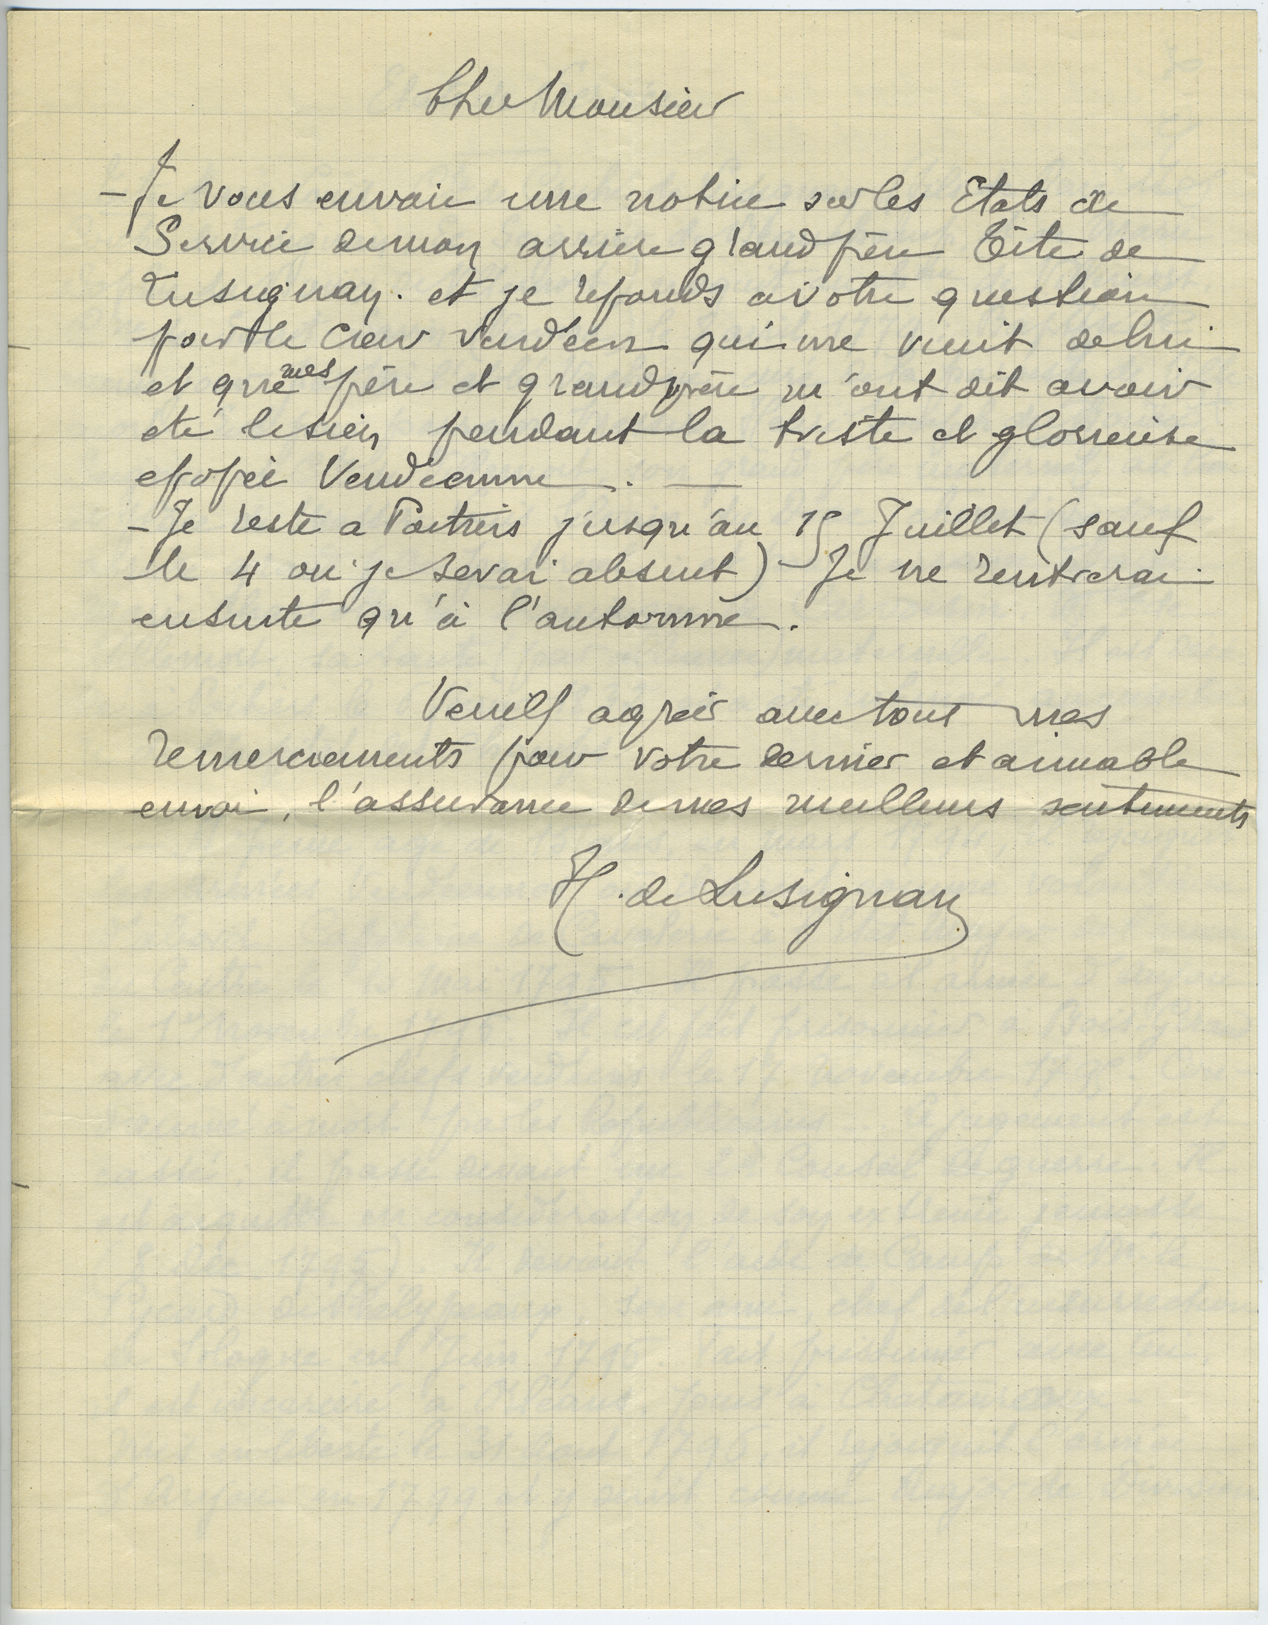 Cher Monsieur
– Je vous envoie une notice sur les Etats de
Service de mon arrière grand père Tite de
Lusignan. et je reponds à votre question
pour le Cœur vendéen qui me vient de lui
et que mes père et grand père m'ont dit avoir
été le sien pendant la triste et glorieuse
epopée Vendéenne. —
– Je reste a Poitiers jusqu'au 15 Juillet (sauf
le 4 ou je serai absent) Je ne rentrerai
ensuite qu'à l'automne.
Veuillez agréer avec tous mes
remerciements pour votre dernier et aimable
envoi, l'assurance de mes meilleurs sentiments
H. de Lusignan